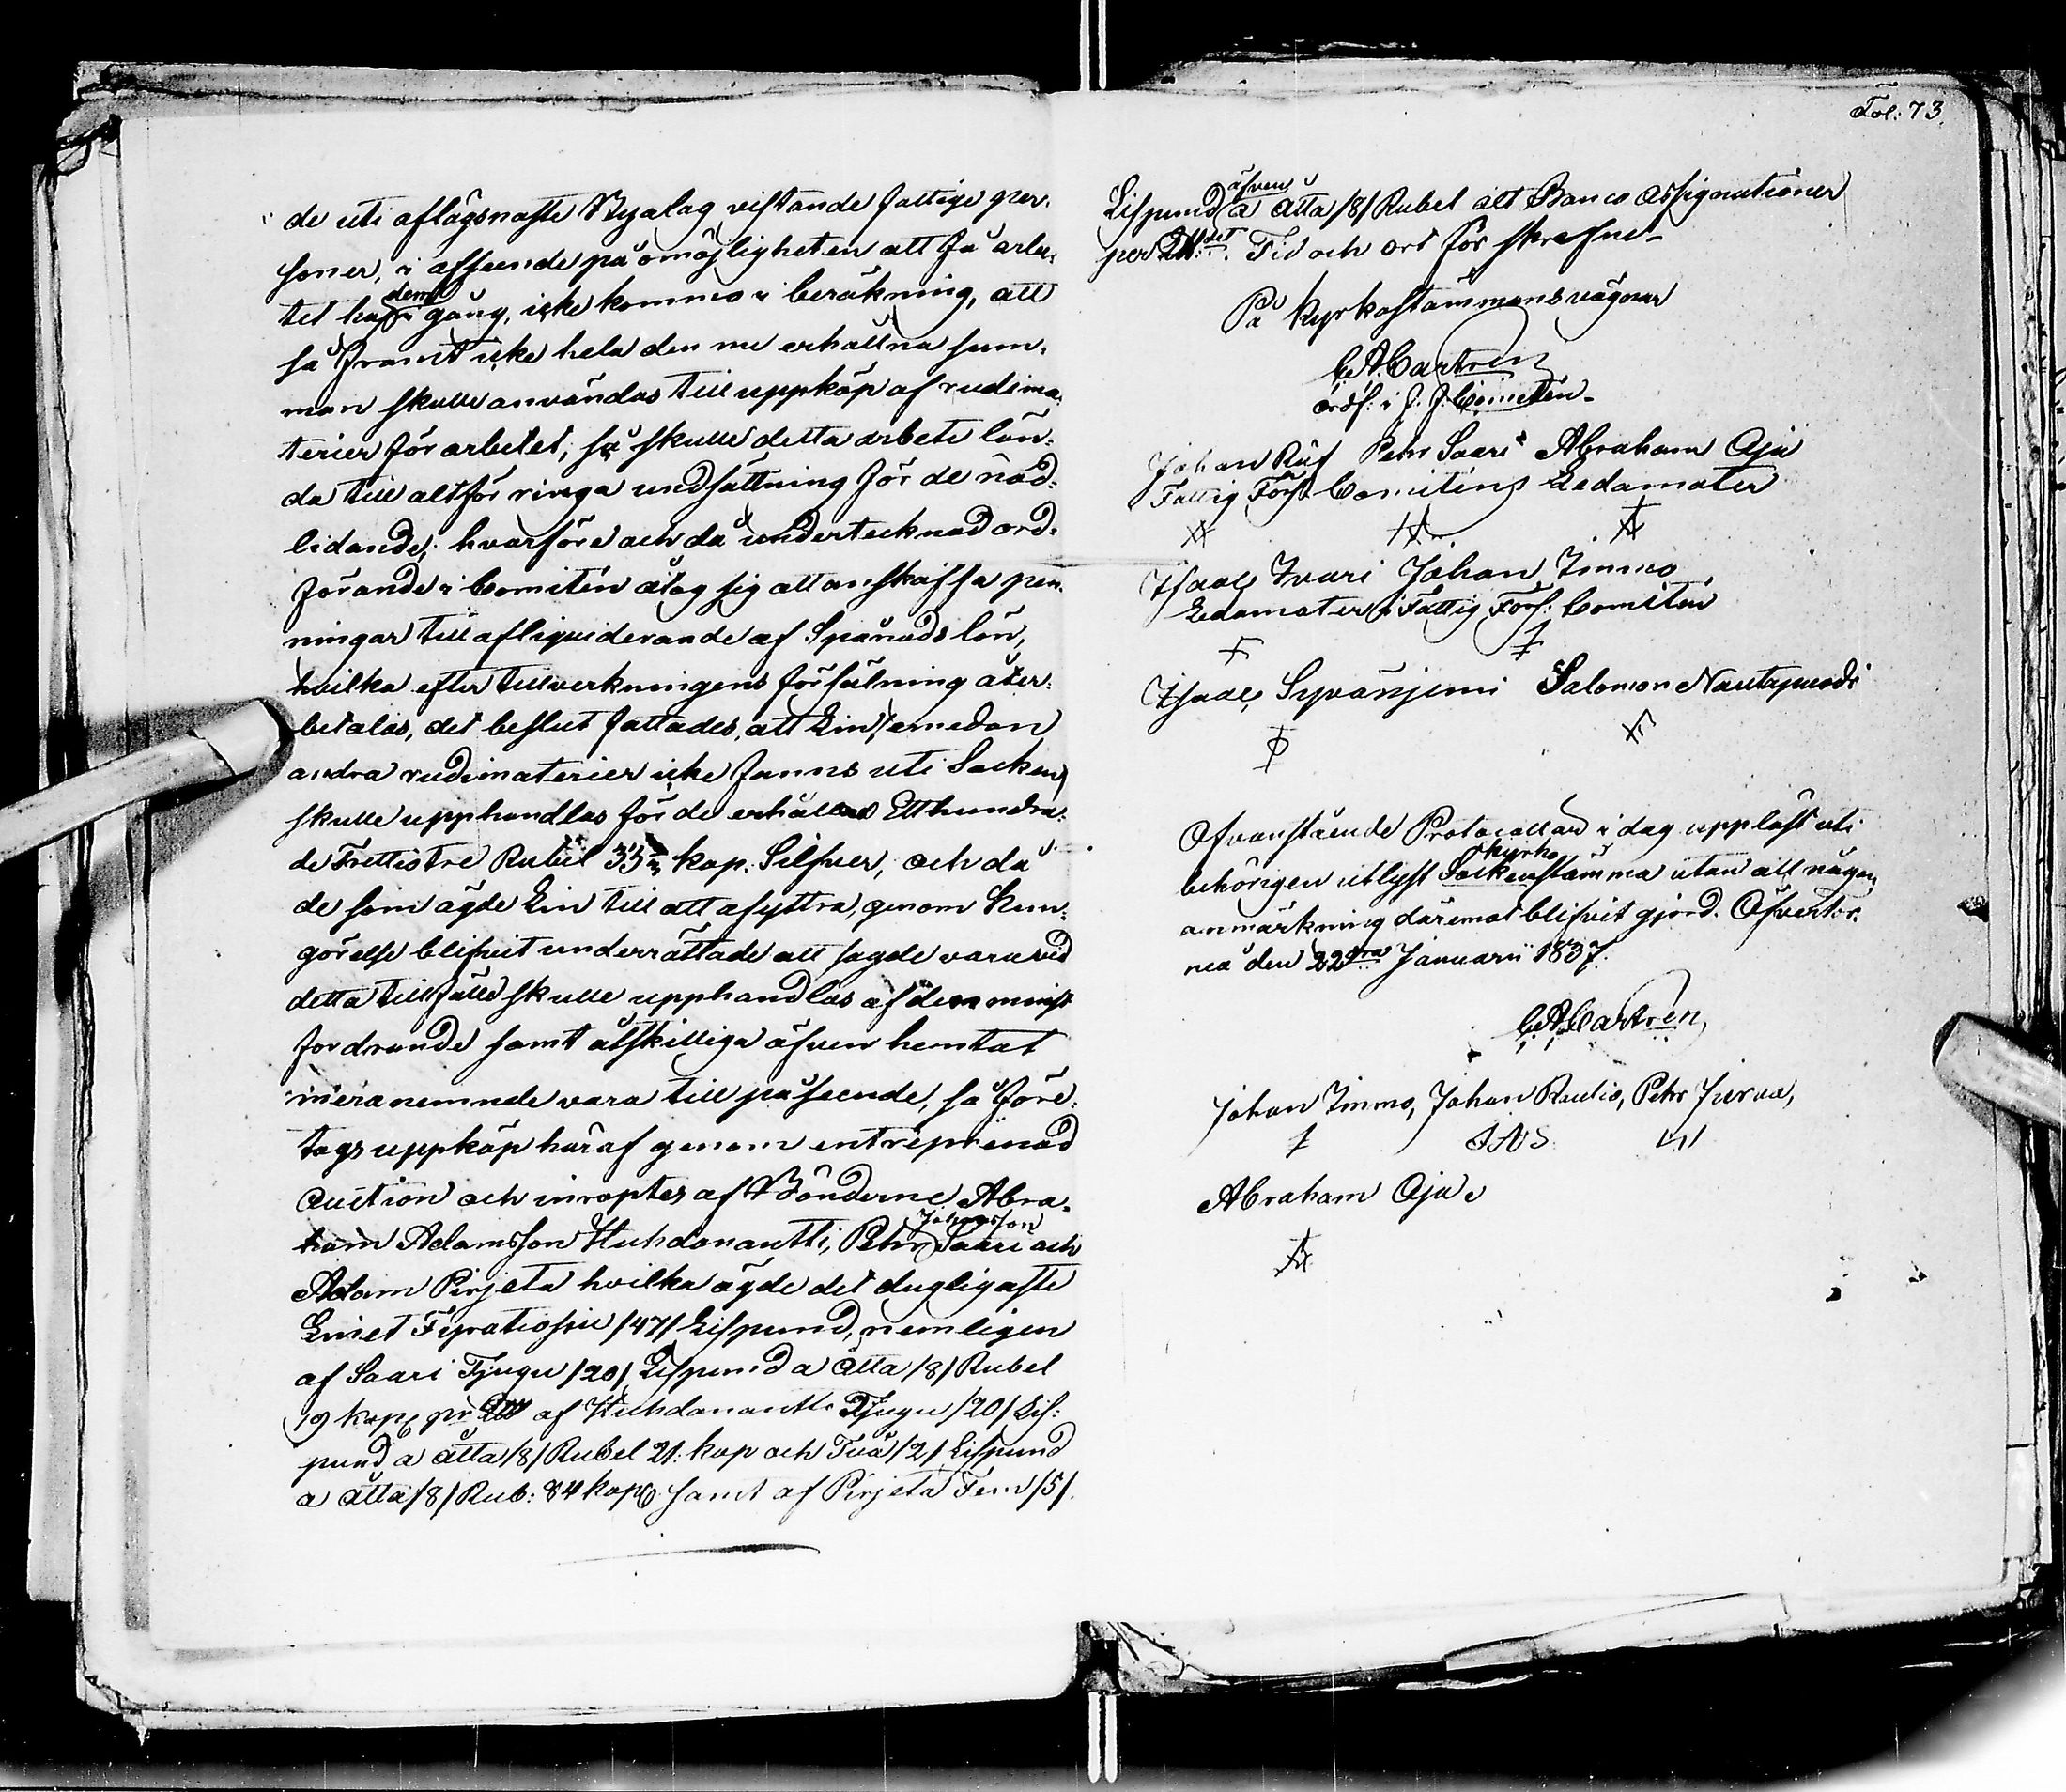 de uti aflägsnaste Byalag vistande fattige per-
soner, i afseende på omöjligheten att få arbe-
tet hos dem i gång, icke kommo i beräkning, att
så framt icke hela den nu erhållna sum-
man skulle användas till uppköp af rudima-
terier för arbetet, så skulle detta arbete län-
da till altför ringa undsättning för de nöd-
lidande; hvarföre och då undertecknad ord-
förande i Comitén åtog sig att anskaffa pen-
ningar till afliqviderande af Spånads lön,
hvilka efter tillverkningens försälning åter-
betalas, det beslut fattades, att Lin, emedan
andra rudimaterier icke fanns uti Socken,
skulle upphandlas för de erhållna Etthundra-
de Trettiotre Rubel 33 kop. Silfver, och då
de som ägde Lin till att afyttra, genom Kun-
görelse blifvit underrättade att sagde vara vid
detta tillfälle skulle upphandlas af dem minst
fordrande samt åtskilliga äfven hemtat
meranemnde vara till påseende, så före-
togs uppköp häraf genom entreprenad
Auction och inroptes af Bönderne Abra-
ham Adamsson Huhdanantti, Petr Johansson Saari och
Adam Pirjetä hvilka ägde det dugligaste
Linet Fyratiosju /47/ Lispund, nemligen
af Saari Tjugu /20/ Lispund a åtta /8/ Rubel
19 kop. pr af Huhdanantti Tjugu /20/ Lis-
pund a åtta /8/ Rubel 21. kop och Två /2/ Lispund
a åtta /8/ Rub: 84 kop. samt af Pirjetä Fem /5/
Fol: 73.
Lispund äfven a åtta /8/ Rubel allt Banco Assignationer
per Tid och ort för skrefne
På Kyrkostämmans vägnar
C A Castrén
ordf. i F. F. Comitén
Johan Petr Saari Abraham Oja
Fattig Förs. Comitens Ledamöter
Isaac Ivari Johan Immo
Ledamöter i Fattig Förs. Comitén
Isaac Syvänjemi Salomon Nautapuodi
Ofvanstående Protocoll är i dag uppläst uti
behörigen utlyst Sockenstämma kyrko utan att någon
anmärkning däremot blifvit gjord. Öfvertor-
neå den 22dra Januarii 1837.
C A Castrén
Johan Immo, Johan Rautio, Petr Jurva,
IAS
Abraham Oja